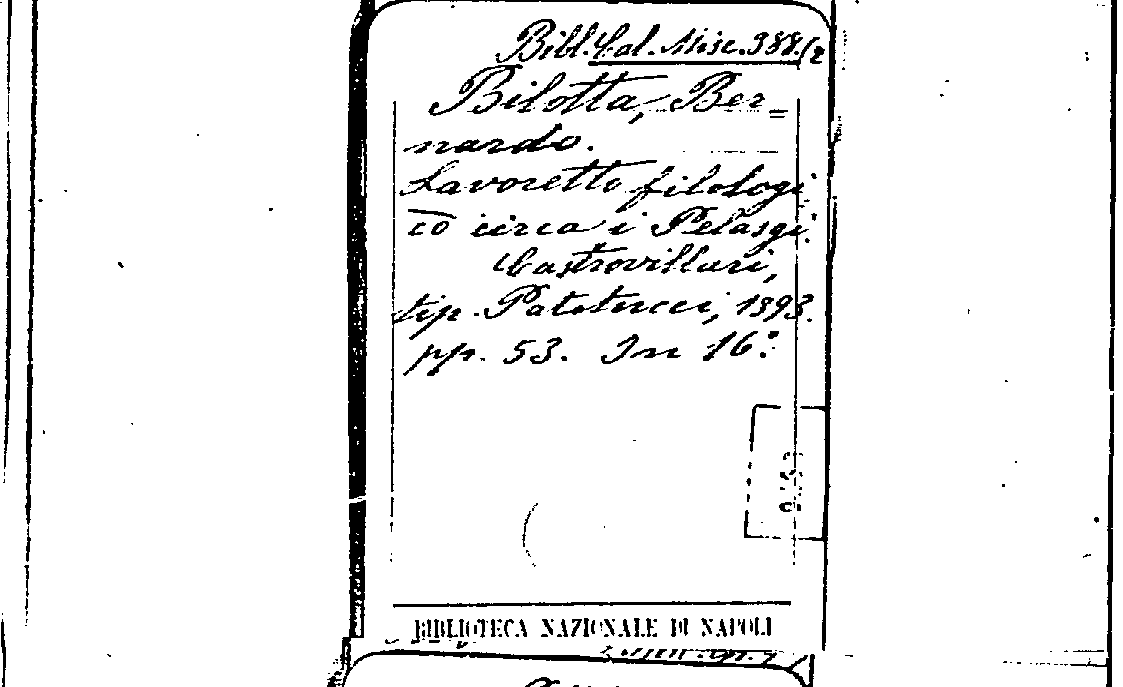 Bibl. Cal. Misc. 388.(2
Bilotta, Ber=
nardo.
Lavoretto filologi
co circa i Pelasgi.
Castrovillari,
tip. Patitucci, 1893.
pp. 53. In 16º.
BIBLIOTECA NAZIONALE DI NAPOLI